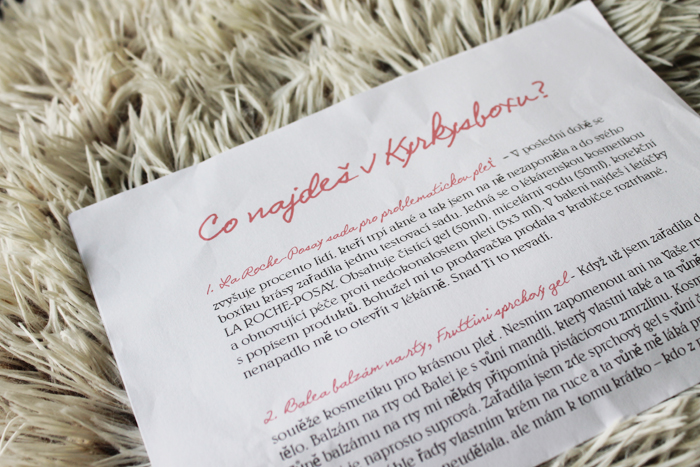 Co najdeš v Kyrkysboxu?
1. La Roche-Posay sada pro problematickou pleť - V poslední době se
zvyšuje procento lidí, kteří trpí akné a tak jsem na ně nezapoměla a do svého
boxíku krásy zařadila jednu testovací sadu. Jedná se o lékárenskou kosmetikou
LA ROCHE-POSAY. Obsahuje čistící gel (50ml), micelární vodu (50ml), korekční
a obnovující péče proti nedokonalostem pleti (3x3 ml). V balení najdeš i letáčky
s popisem produktů. Bohužel mi to prodavačka prodala v krabičce roztrhané,
nenapadlo mě to otevřít v lékárně. Snad Ti to nevadí.
2. Balea balzám na rty, Fruttini sprchový gel - Když už jsem zařadila
soutěže kosmetiku pro krásnou pleť. Nesmím zapomenout ani na Vaše
tělo. Balzám na rty od Balej je s vůní mandlí, který vlastní také a ta vůně
vůně balzámu na rty mi někdy připomíná pistáciovou zmrzlinu. Kosm
je naprosto suprová. Zařadila jsem zde sprchový gel s vůn
řady vlastním krém na ruce a ta vůně mě láká
neudělala, ale mám k tomu krátko - kdo z